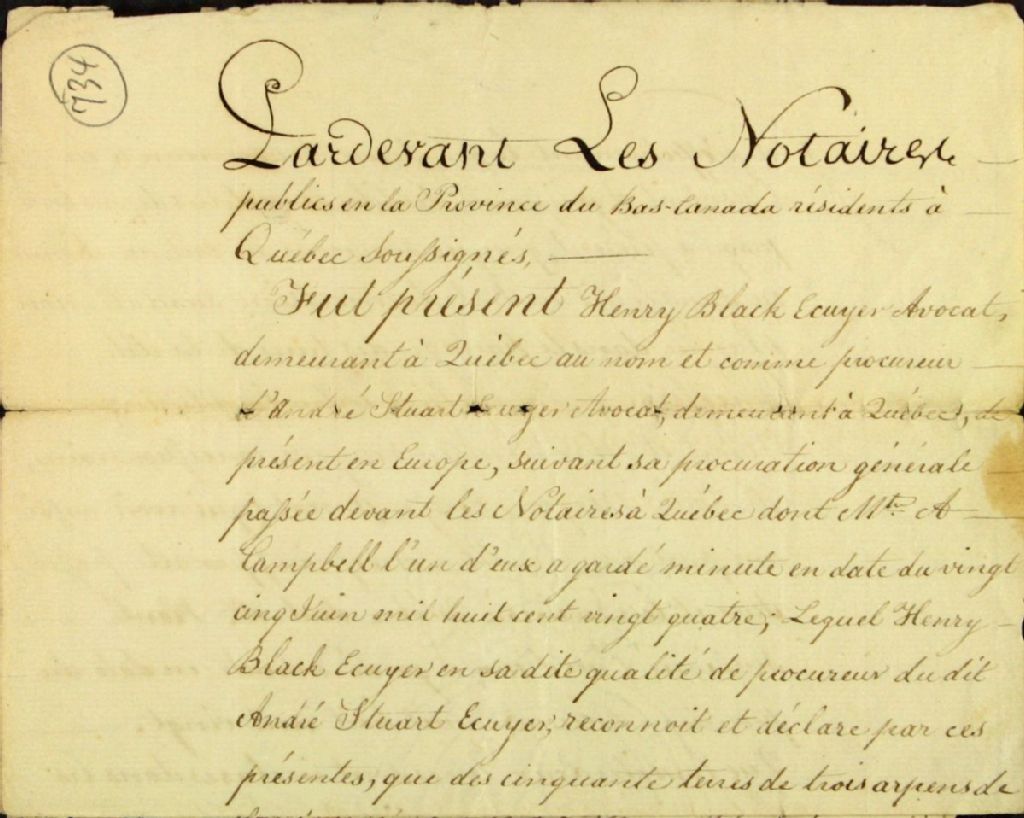 434
Pardevant Les Notaires
publics en la Province du Bas-Canada résidents à
Québec Soussignés,
Fut présent Henry Black Ecuyer Avocat,
demeurant à Québec au nom et comme procureur
d'André Stuart Ecuyer Avocat, demeurant à Québec, de
présent en Europe, suivant sa procuration générale
passée devant les Notaires à Québec dont Mtre A
Campbell l'un d'eux a gardé minute en date du vingt
cinq Juin mil huit cent vingt quatre; Lequel Henry
Black Ecuyer en sa dite qualité de procureur du dit
André Stuart Ecuyer, reconnoit et déclare par ces
présentes, que des cinquante terres de trois arpens de